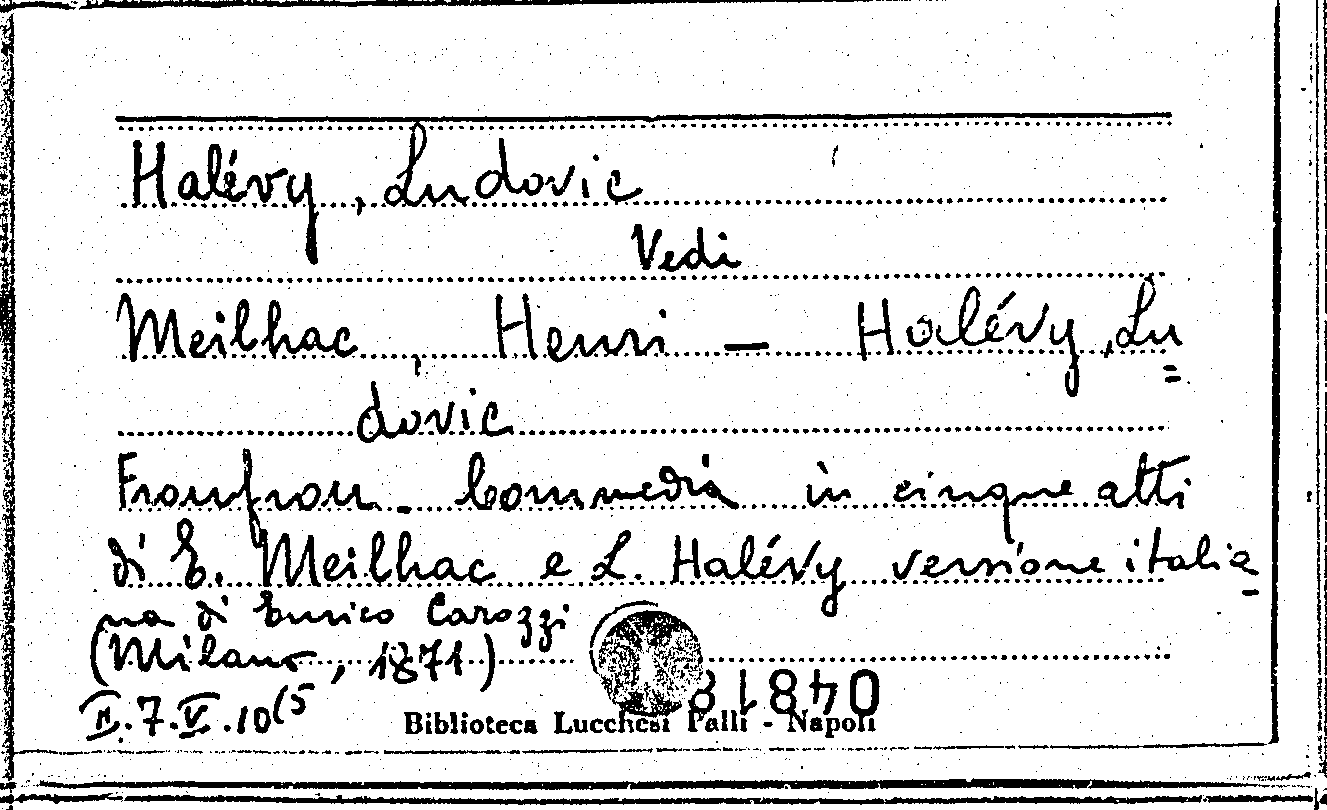 Halévy, Ludovic
Vedi
Meilhac, Henri — Halévy, Lu=
dovic
Froufrou - Commedia in cinque atti
di E. Meilhac e L. Halévy versione italia-
na di Enrico Carozzi
(Milano, 1871)
II.7.V.10(5
Biblioteca Lucchesi Palli - Napoli